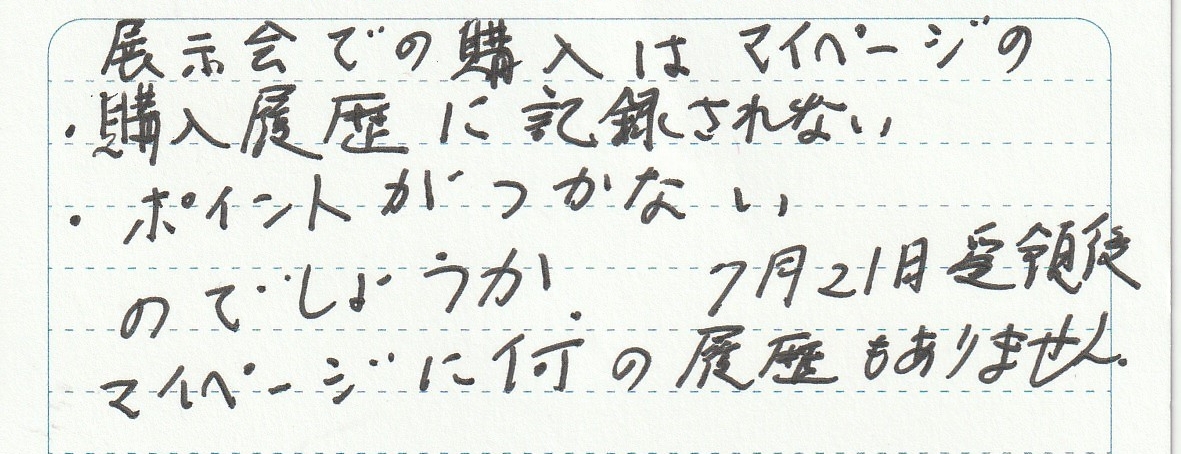 展示会での購入は マイページの
・購入履歴に記録されない
・ポイントがつかない
のでしょうか 7月21日受領後
マイページに何の履歴もありません.